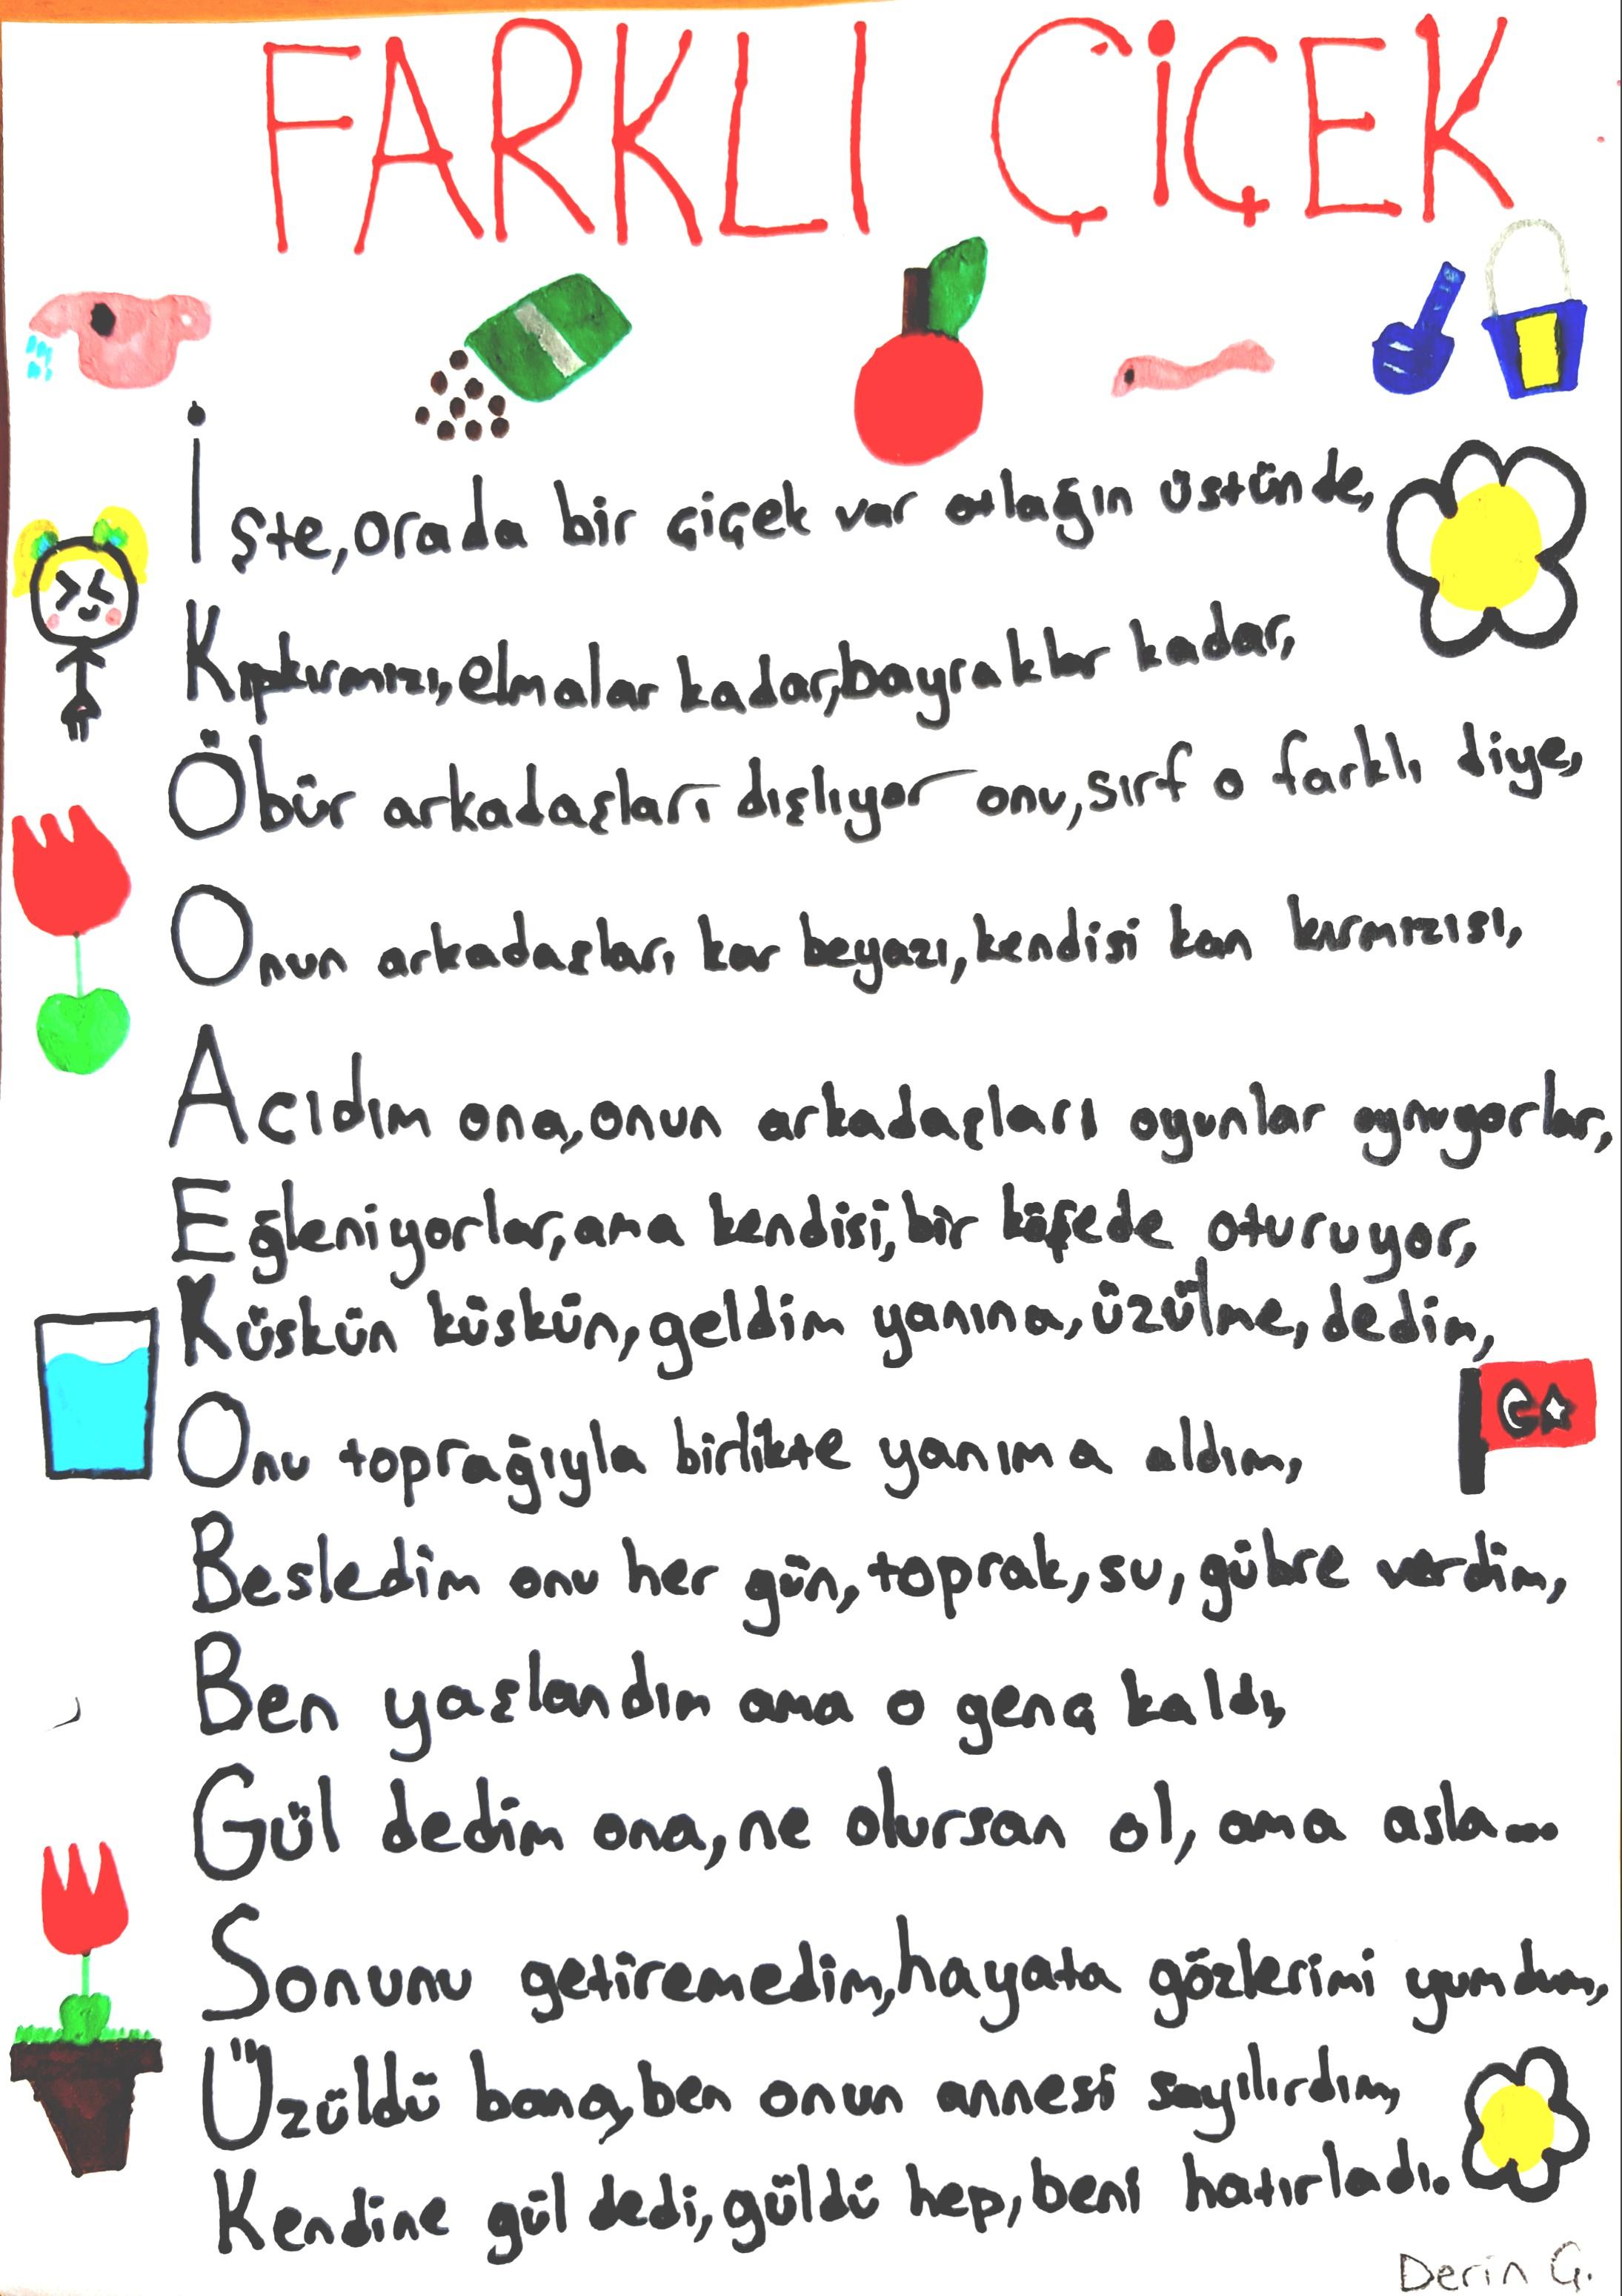 FARKLI ÇİÇEK
İşte, orada bir çiçek var otlağın üstünde,
Kıpkırmızı, elmalar kadar, bayraklar kadar,
Öbür arkadaşları dışlıyor onu, sırf o farklı diye,
Onun arkadaşları kar beyazı, kendisi kan kırmızısı,
Acıdım ona, onun arkadaşları oyunlar oynuyorlar,
Eğleniyorlar, ama kendisi, bir köşede oturuyor,
Küskün küskün, geldim yanına, üzülme, dedim,
Onu toprağıyla birlikte yanıma aldım,
Besledim onu her gün, toprak, su, gübre verdim,
Ben yaşlandım ama o genç kaldı,
Gül dedim ona, ne olursan ol, ama asla...
Sonunu getiremedim, hayata gözlerimi yumdum,
Üzüldü bana, ben onun annesi sayılırdım,
Kendine gül dedi, güldü hep, beni hatırladı.
Derin G.